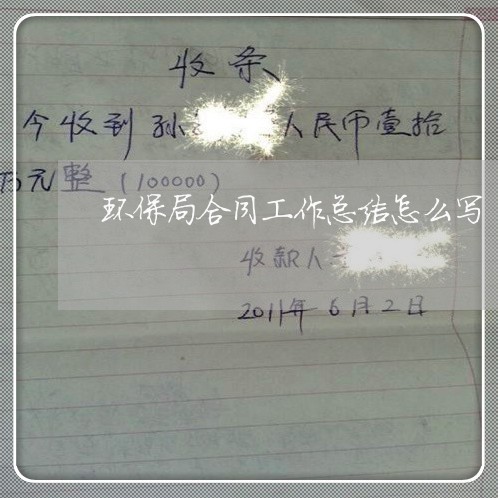 收条
今收到孙 人民币壹拾
万元整(100000)
环保局合同工作总结怎么写
收款人
2011年6月2日